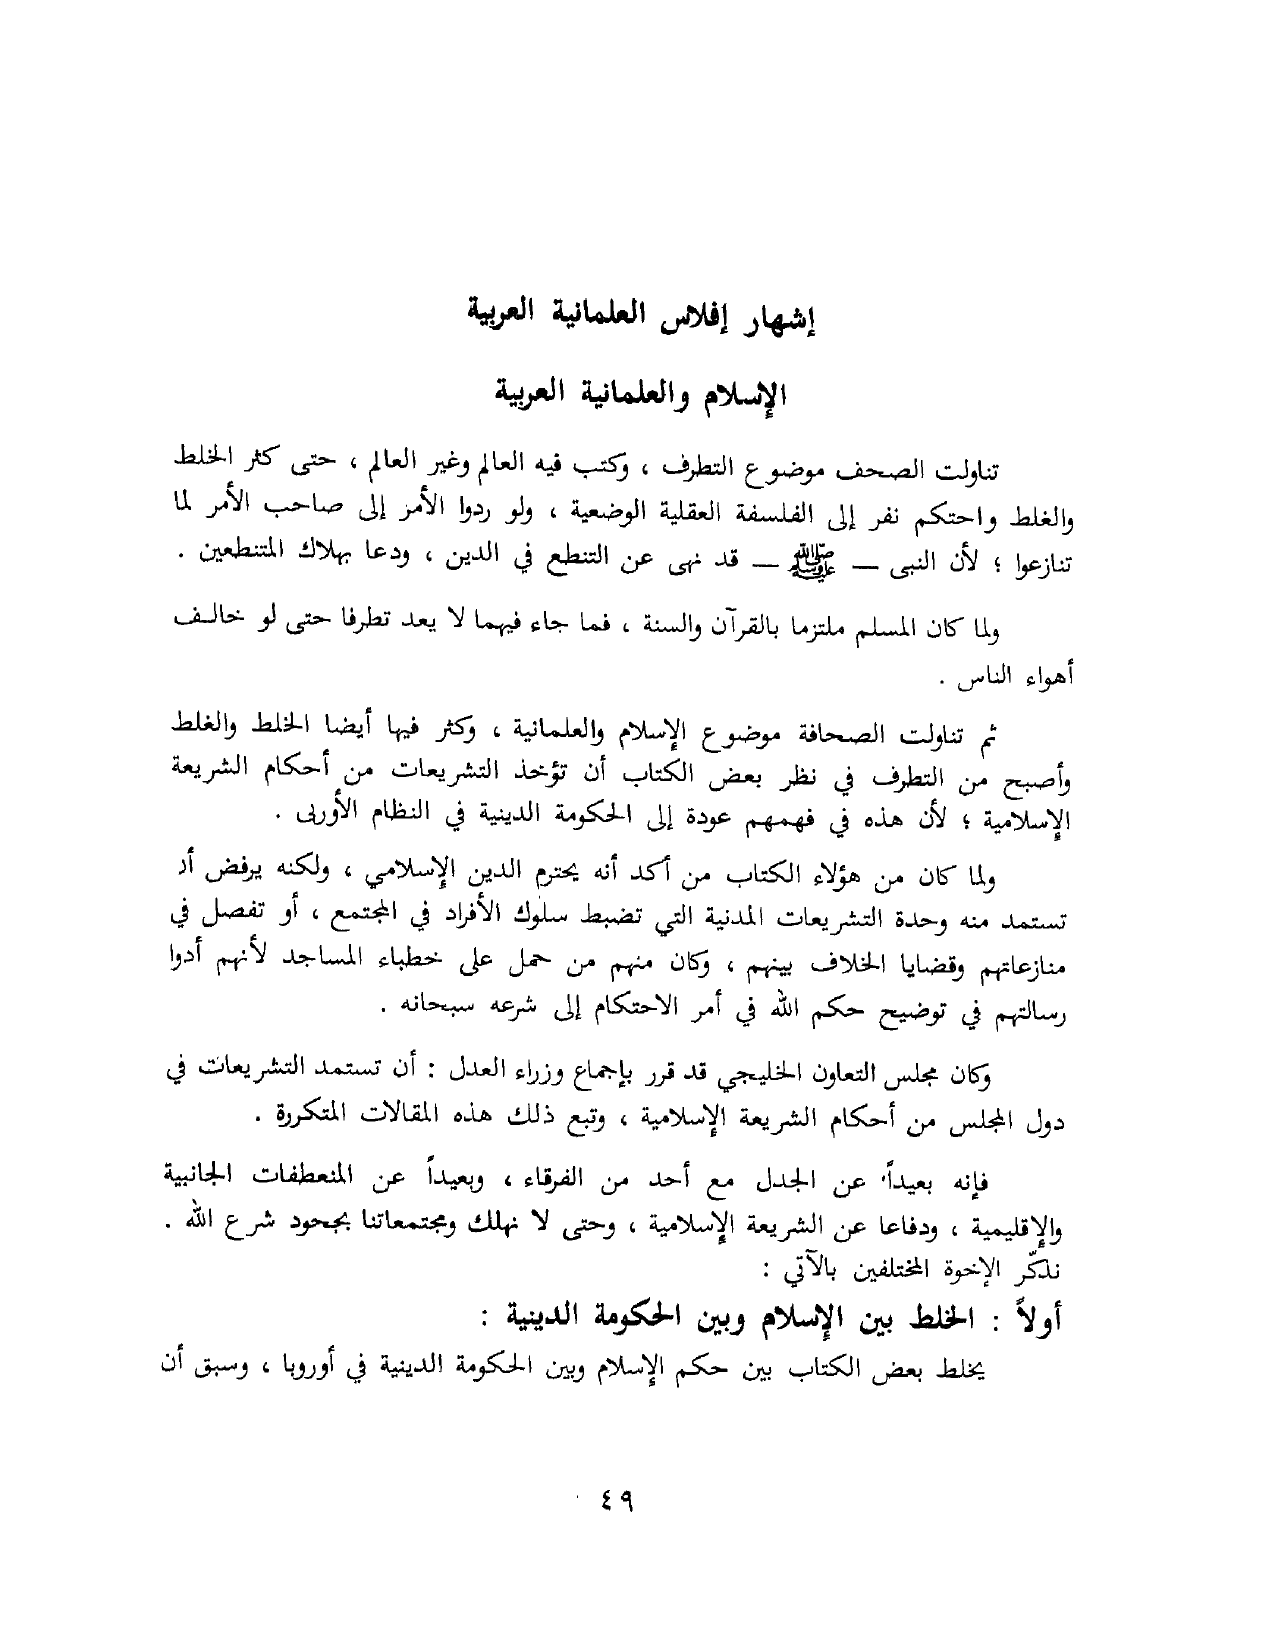 إشهار إفلاس العلمانية العربية
الإسلام والعلمانية العربية
تناولت الصحف موضوع التطرف ، وكتب فيه العالم وغير العالم ، حتى كثر الخلط
والغلط واحتكم نفر إلى الفلسفة العقلية الوضعية ، ولو ردوا الأمر إلى صاحب الأمر لما
تنازعوا ؛ لأن النبى — ﷺ — قد نهى عن التنطع في الدين ، ودعا بهلاك المتنطعين .
ولما كان المسلم ملتزما بالقرآن والسنة ، فما جاء فيهما لا يعد تطرفا حتى لو خالف
أهواء الناس .
ثم تناولت الصحافة موضوع الإسلام والعلمانية ، وكثر فيها أيضا الخلط والغلط
وأصبح من التطرف في نظر بعض الكتاب أن تؤخذ التشريعات من أحكام الشريعة
الإسلامية ؛ لأن هذه في فهمهم عودة إلى الحكومة الدينية في النظام الأوربى .
ولما كان من هؤلاء الكتاب من أكد أنه يحترم الدين الإسلامي ، ولكنه يرفض أن
تستمد منه وحدة التشريعات المدنية التي تضبط سلوك الأفراد في المجتمع ، أو تفصل في
منازعاتهم وقضايا الخلاف بينهم ، وكان منهم من حمل على خطباء المساجد لأنهم أدوا
رسالتهم في توضيح حكم الله في أمر الاحتكام إلى شرعه سبحانه .
وكان مجلس التعاون الخليجي قد قرر بإجماع وزراء العدل : أن تستمد التشريعات في
دول المجلس من أحكام الشريعة الإسلامية ، وتبع ذلك هذه المقالات المتكررة .
فإنه بعيداً عن الجدل مع أحد من الفرقاء ، وبعيداً عن المنعطفات الجانبية
والإقليمية ، ودفاعا عن الشريعة الإسلامية ، وحتى لا نهلك ومجتمعاتنا بجحود شرع الله .
نذكّر الإخوة المختلفين بالآتي :
أولاً : الخلط بين الإسلام وبين الحكومة الدينية :
يخلط بعض الكتاب بين حكم الإسلام وبين الحكومة الدينية في أوروبا ، وسبق أن
٤٩